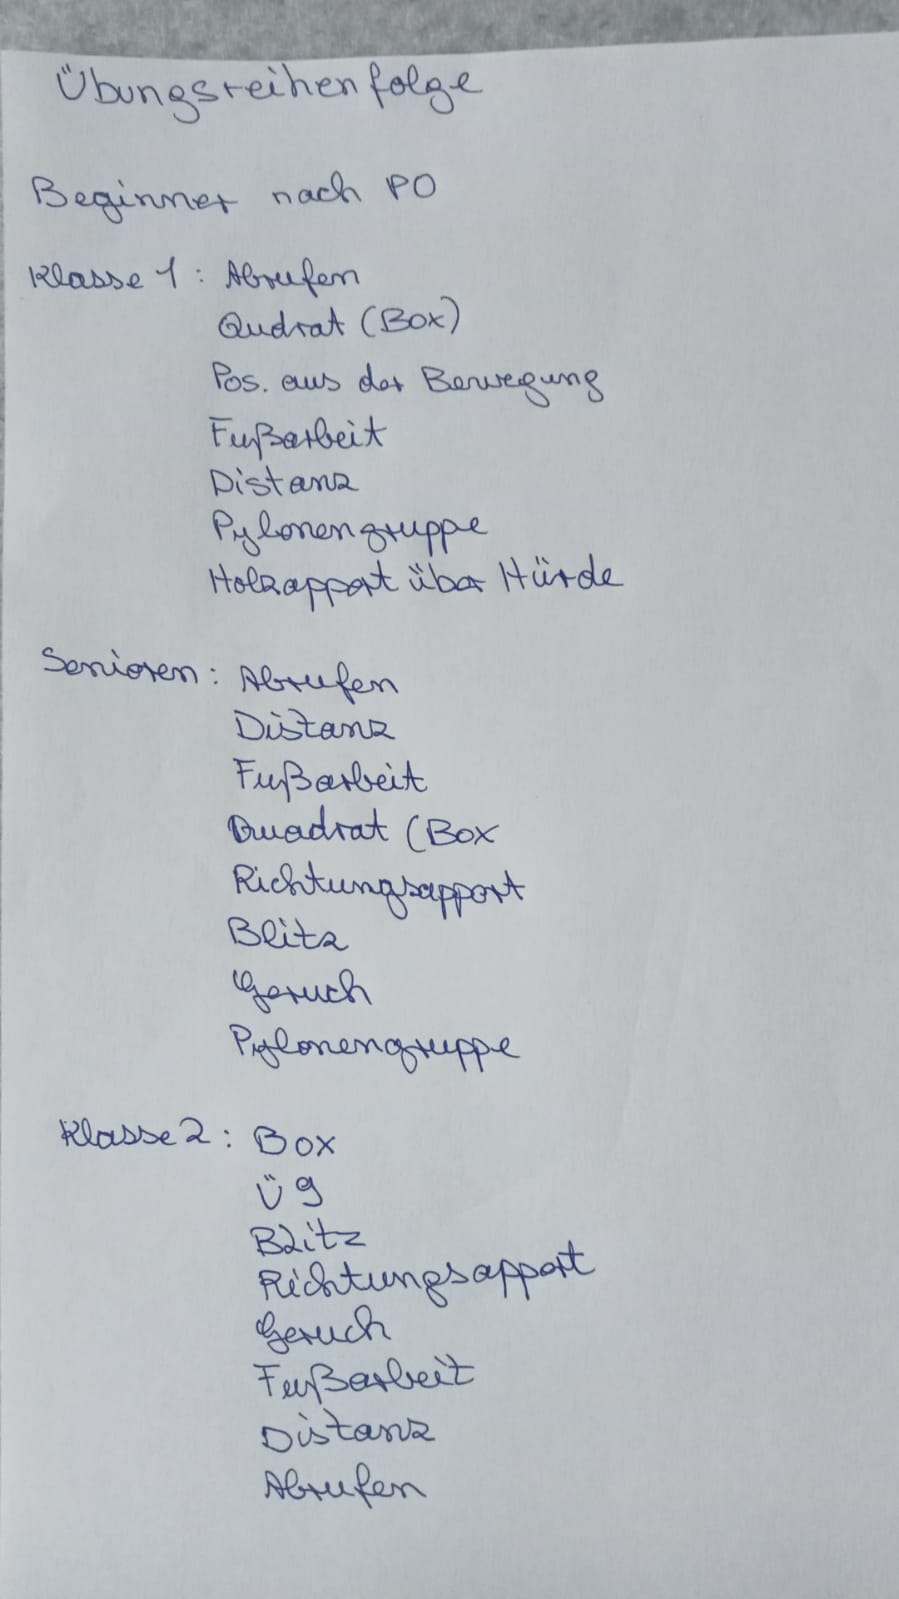 Übungsreihenfolge
Beginner nach PO
Klasse 1: Abrufen
Qudrat (Box)
Pos. aus der Bewegung
Fußarbeit
Distanz
Pylonengruppe
Holzapport über Hürde
Senioren: Abrufen
Distanz
Fußarbeit
Quadrat (Box
Richtungsapport
Blitz
Geruch
Pylonengruppe
Klasse 2: Box
Ü9
Blitz
Richtungsapport
Geruch
Fußarbeit
Distanz
Abrufen